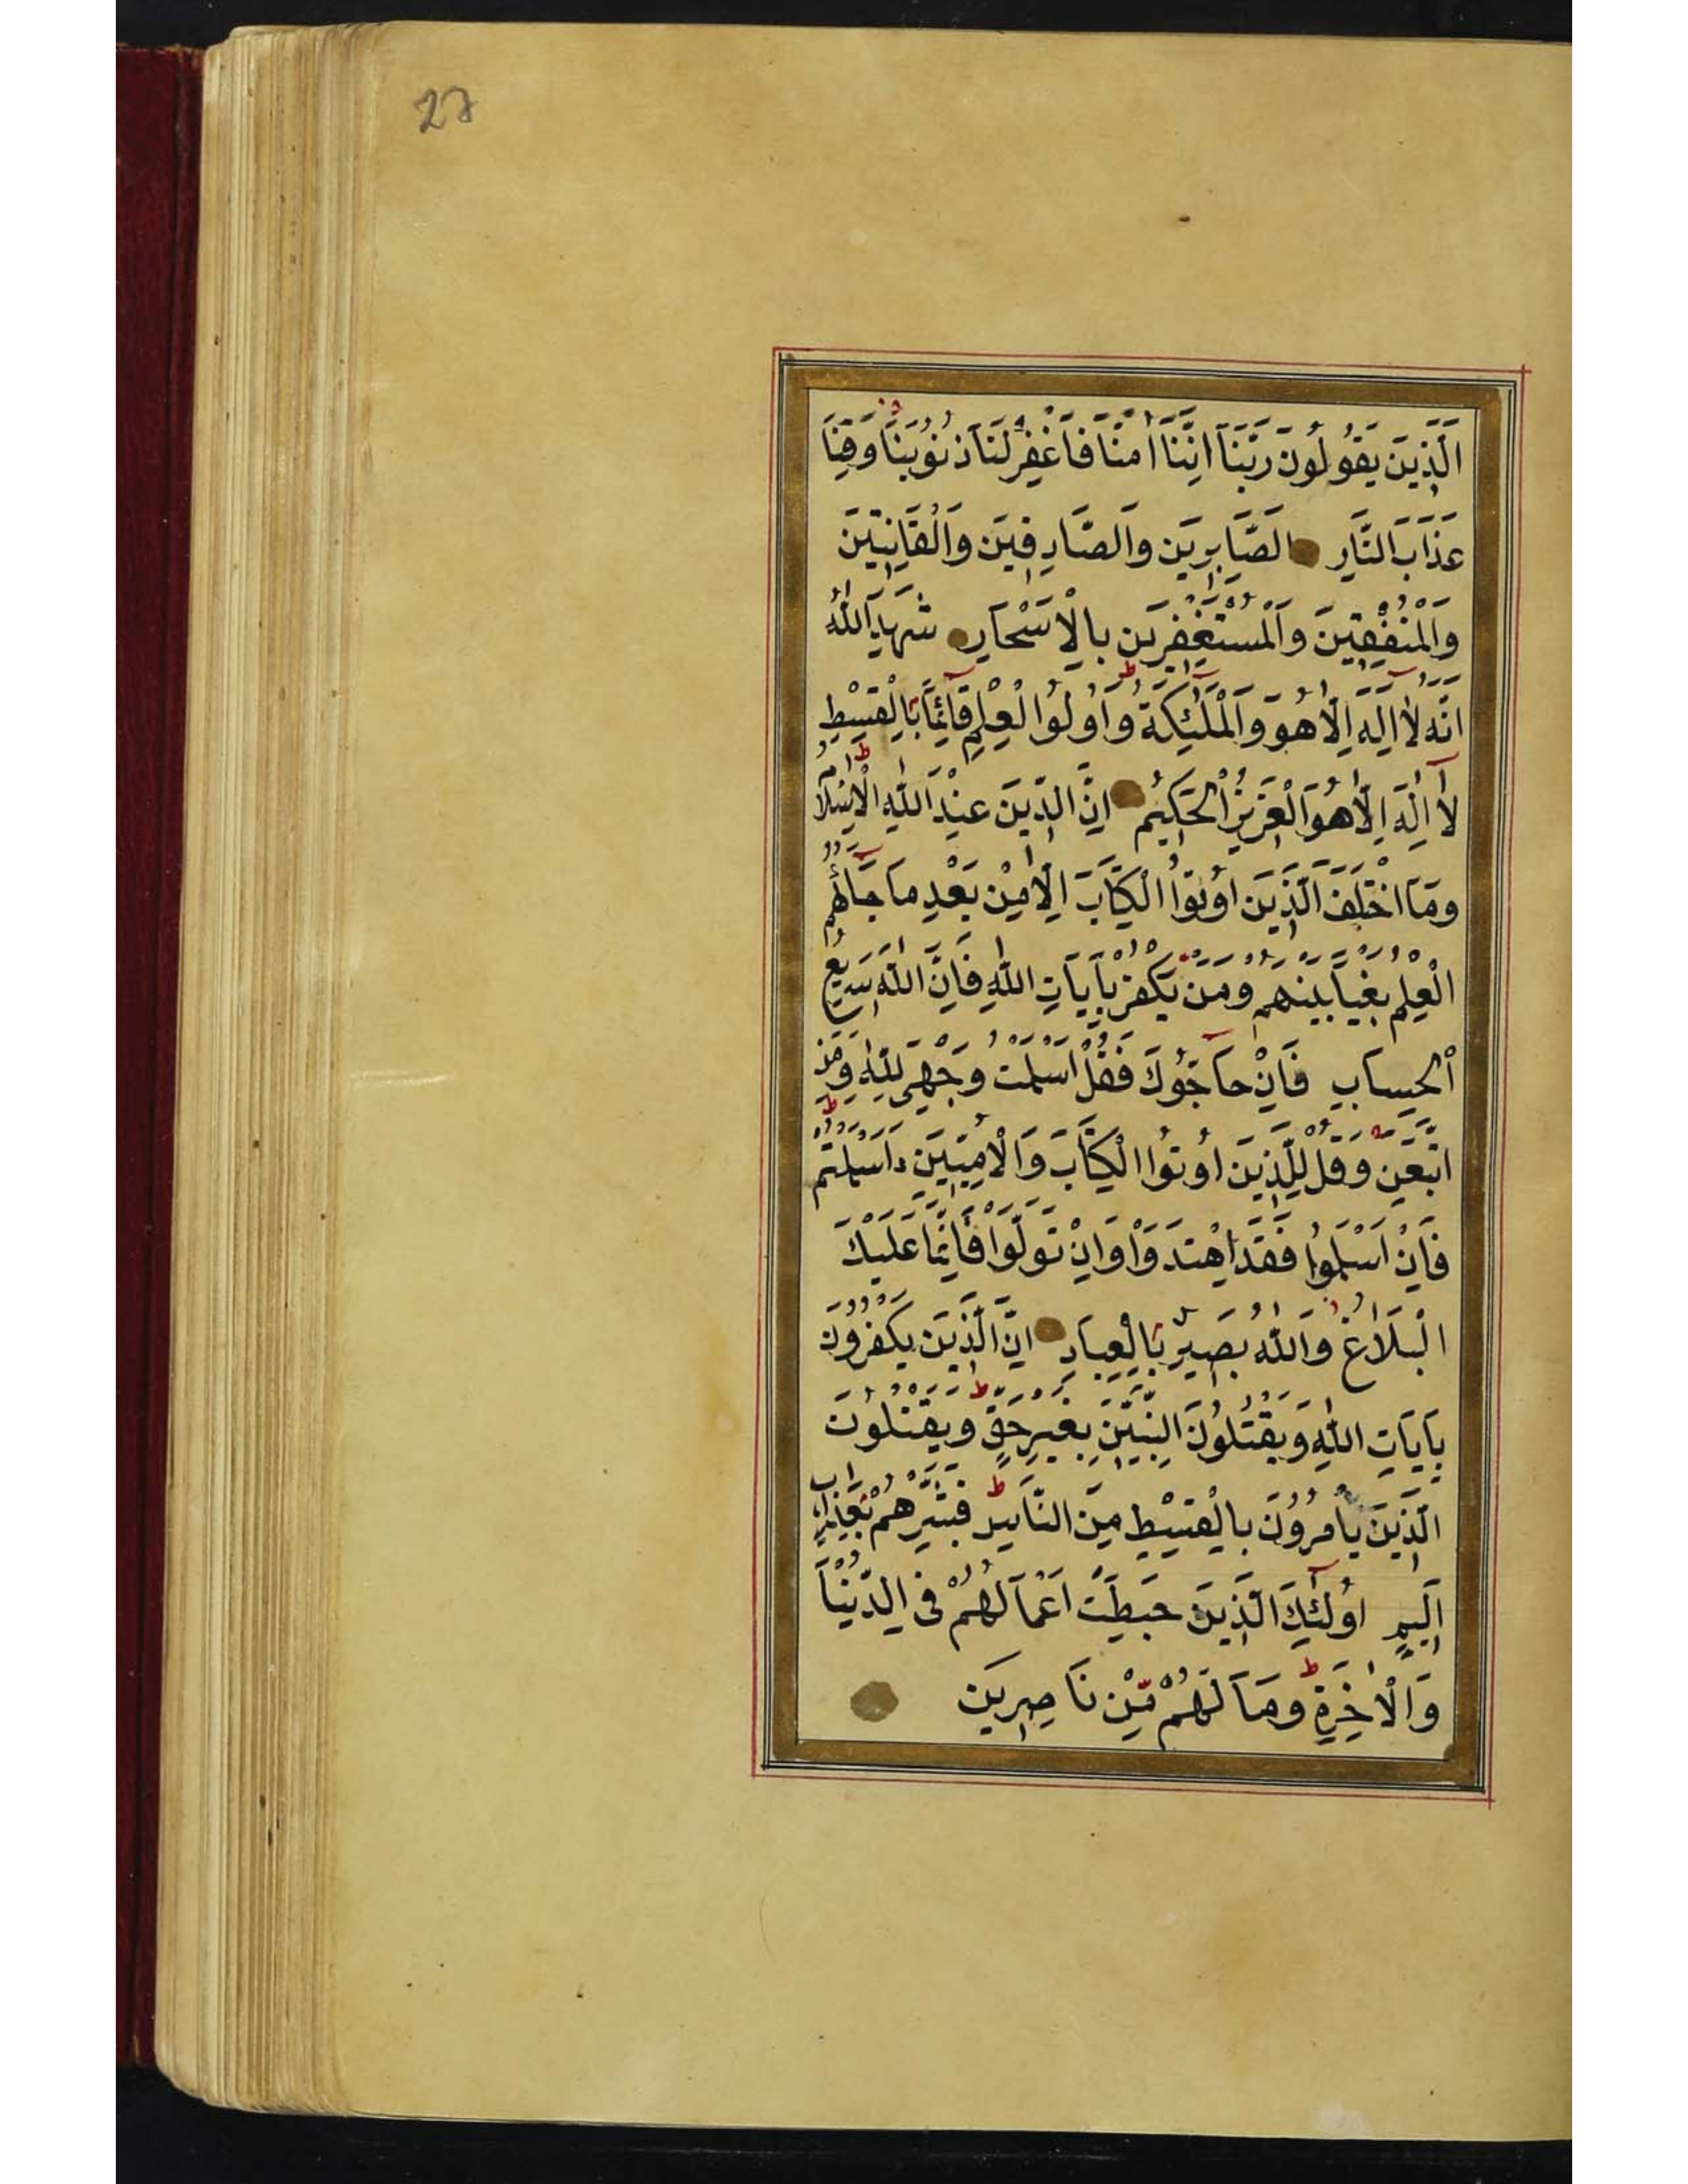 27
الَّذِينَ يَقُولُونَ رَبَّنَا اِنَّنَا اٰمَنَّا فَاغْفِرْ لَنَا ذُنُوبَنَا وَقِنَا
عَذَابَ النَّارِ الصَّابِرِينَ وَالصَّادِقِينَ وَالْقَانِتِينَ
وَالْمُنْفِقِينَ وَالْمُسْتَغْفِرِينَ بِالْاَسْحَارِ شَهِدَ اللّٰهُ
اَنَّهُ لَا اِلٰهَ اِلَّا هُوَ وَالْمَلٰئِكَةُ وَاُولُوا الْعِلْمِ قَائِمًا بِالْقِسْطِ
لَا اِلٰهَ اِلَّا هُوَ الْعَزِيزُ الْحَكِيمُ اِنَّ الدِّينَ عِنْدَ اللّٰهِ الْاِسْلَامُ
وَمَا اخْتَلَفَ الَّذِينَ اُوتُوا الْكِتَابَ اِلَّا مِنْ بَعْدِ مَا جَائَهُمُ
الْعِلْمُ بَغْيًا بَيْنَهُمْ وَمَنْ يَكْفُرْ بِاٰيَاتِ اللّٰهِ فَاِنَّ اللّٰهَ سَرِيعُ
الْحِسَابِ فَاِنْ حَاجُّوكَ فَقُلْ اَسْلَمْتُ وَجْهِيَ لِلّٰهِ وَمَنِ
اتَّبَعَنِ وَقُلْ لِلَّذِينَ اُوتُوا الْكِتَابَ وَالْاُمِّيِّينَ ءَاَسْلَمْتُمْ
فَاِنْ اَسْلَمُوا فَقَدِ اهْتَدَوْا وَاِنْ تَوَلَّوْا فَاِنَّمَا عَلَيْكَ
الْبَلَاغُ وَاللّٰهُ بَصِيرٌ بِالْعِبَادِ اِنَّ الَّذِينَ يَكْفُرُونَ
بِاٰيَاتِ اللّٰهِ وَيَقْتُلُونَ النَّبِيِّنَ بِغَيْرِ حَقٍّ وَيَقْتُلُونَ
الَّذِينَ يَأْمُرُونَ بِالْقِسْطِ مِنَ النَّاسِ فَبَشِّرْهُمْ بِعَذَابٍ
اَلِيمٍ اُولٰئِكَ الَّذِينَ حَبِطَتْ اَعْمَالُهُمْ فِي الدُّنْيَا
وَالْاٰخِرَةِ وَمَا لَهُمْ مِّنْ نَاصِرِينَ